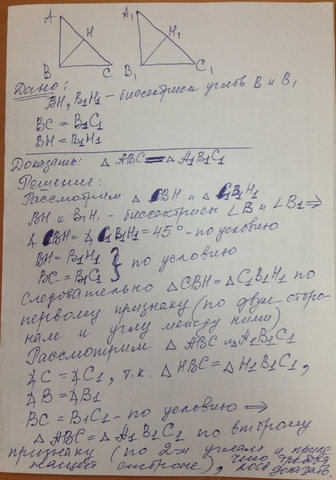 A
H
B
C
A₁
H₁
B₁
C₁
Дано:
BH, B₁H₁ - биссектрисы углов B и B₁
BC = B₁C₁
BH = B₁H₁
Доказать: △ ABC = △ A₁B₁C₁
Решение:
Рассмотрим △ CBH и △ C₁B₁H₁
BH и B₁H₁ - биссектрисы ∠B и ∠B₁ ⇒
∡ CBH = ∡ C₁B₁H₁ = 45° - по условию
BH = B₁H₁ } по условию
BC = B₁C₁
Следовательно △CBH = △C₁B₁H₁ по
первому признаку (по двум сторо-
нам и углу между ними)
Рассмотрим △ ABC и △ A₁B₁C₁
∡C = ∡C₁, т.к. △ HBC = △ H₁B₁C₁,
∡B = ∡B₁
BC = B₁C₁ - по условию ⇒
△ ABC = △ A₁B₁C₁ по второму
признаку (по 2-м углам и приле
жащей стороне), что и требова
лось доказать.